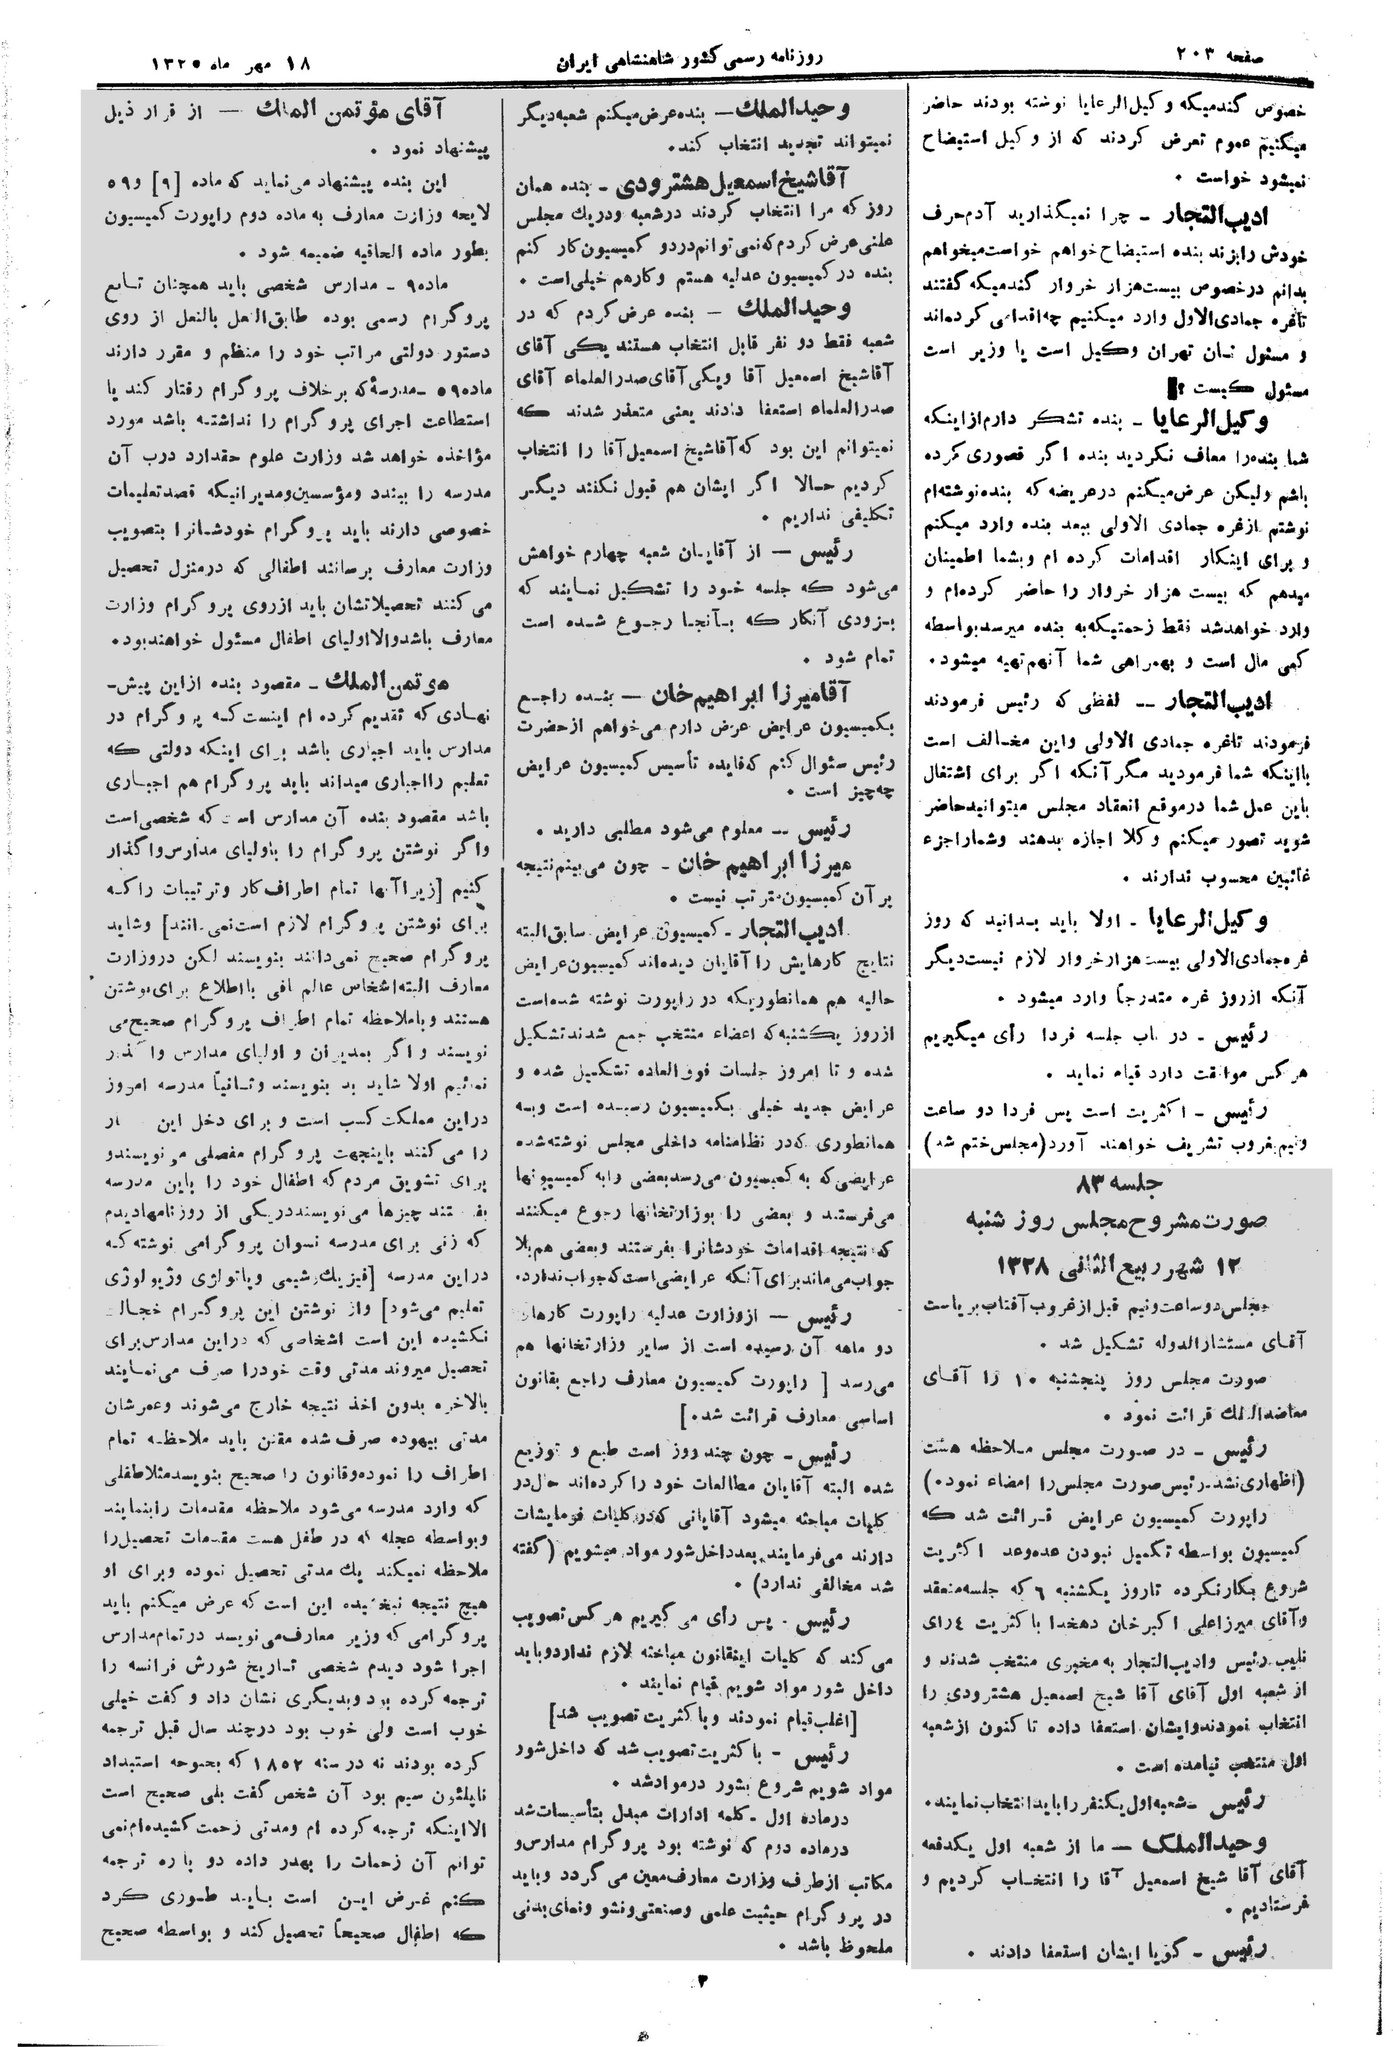 صفحه ۲۰۳
روزنامه رسمی کشور شاهنشاهی ایران
۱۸ مهر ماه ۱۳۲۵
خصوص گندمیکه وکیل‌الرعایا نوشته بودند حاضر
میکنیم عموم تعرض کردند که از وکیل استیضاح
نمیشود خواست .
ادیب‌التجار - چرا نمیگذارید آدم حرف
خودش را بزند بنده استیضاح خواهم خواست میخواهم
بدانم در خصوص بیست هزار خروار گندمیکه گفتند
تا غره جمادی الاول وارد میکنیم چه اقدامی کرده‌اند
و مسئول نان تهران وکیل است یا وزیر است
مسئول کیست ؟
وکیل‌الرعایا - بنده تشکر دارم از اینکه
شما بنده را معاف نکردید بنده اگر قصوری کرده
باشم ولیکن عرض میکنم در عریضه که بنده نوشته‌ام
نوشتم از غره جمادی الاولی ببعد بنده وارد میکنم
و برای اینکار اقدامات کرده ام و بشما اطمینان
میدهم که بیست هزار خروار را حاضر کرده‌ام و
وارد خواهد شد فقط زحمتیکه به بنده میرسد بواسطه
کمی مال است و بهمراهی شما آنهم تهیه میشود.
ادیب‌التجار -- لفظی که رئیس فرمودند
فرمودند تا غره جمادی الاولی و این مخالف است
با اینکه شما فرمودید مگر آنکه اگر برای اشتغال
باین عمل شما در موقع انعقاد مجلس میتوانید حاضر
شوید تصور میکنم وکلا اجازه بدهند و شما را جزء
غائبین محسوب ندارند .
وکیل‌الرعایا - اولا باید بدانید که روز
غره جمادی الاولی بیست هزار خروار لازم نیست دیگر
آنکه از روز غره متدرجاً وارد میشود .
رئیس - در باب جلسه فردا رأی میگیریم
هر کس موافقت دارد قیام نماید .
رئیس - اکثریت است پس فردا دو ساعت
و نیم بغروب تشریف خواهند آورد (مجلس ختم شد)
جلسه ۸۳
صورت مشروح مجلس روز شنبه
۱۲ شهر ربیع الثانی ۱۳۲۸
مجلس دو ساعت و نیم قبل از غروب آفتاب بریاست
آقای مستشار الدوله تشکیل شد .
صورت مجلس روز پنجشنبه ۱۰ را آقای
معاضد الملک قرائت نمود .
رئیس - در صورت مجلس ملاحظه هست
(اظهاری نشد - رئیس صورت مجلس را امضاء نمود.)
راپورت کمیسیون عرایض قرائت شد که
کمیسیون بواسطه تکمیل نبودن عده و عد اکثریت
شروع بکار نکرده تا روز یکشنبه ۶ که جلسه منعقد
و آقای میرزا علی اکبر خان دهخدا با کثریت ٤ رای
نایب رئیس و ادیب التجار به مخبری منتخب شدند و
از شعبه اول آقای آقا شیخ اسمعیل هشترودی را
انتخاب نمودند و ایشان استعفا داده تا کنون از شعبه
اول منتخب نیامده است .
رئیس - شعبه اول یکنفر را باید انتخاب نمایند.
وحید الملک - ما از شعبه اول یکدفعه
آقای آقا شیخ اسمعیل آقا را انتخاب کردیم و
فرستادیم .
رئیس - گویا ایشان استعفا دادند .
وحید الملک - بنده عرض میکنم شعبه دیگر
نمیتواند تجدید انتخاب کند.
آقا شیخ اسمعیل هشترودی - بنده همان
روز که مرا انتخاب کردند در شعبه و در یک مجلس
علنی عرض کردم که نمی توانم در دو کمیسیون کار کنم
بنده در کمیسیون عدلیه هستم و کارهم خیلی است .
وحید الملک - بنده عرض کردم که در
شعبه فقط دو نفر قابل انتخاب هستند یکی آقای
آقا شیخ اسمعیل آقا و یکی آقای صدر العلماء آقای
صدر العلماء استعفا دادند یعنی متعذر شدند که
نمیتوانم این بود که آقا شیخ اسمعیل آقا را انتخاب
کردیم حالا اگر ایشان هم قبول نکنند دیگر
تکلیفی نداریم .
رئیس - از آقایان شعبه چهارم خواهش
می‌شود که جلسه خود را تشکیل نمایند که
بزودی آنکار که بآنجا رجوع شده است
تمام شود .
آقا میرزا ابراهیم خان - بنده راجع
بکمیسیون عرایض عرض دارم می‌خواهم از حضرت
رئیس سئوال کنم که فایده تأسیس کمیسیون عرایض
چه چیز است .
رئیس -- معلوم می‌شود مطلبی دارید .
میرزا ابراهیم خان - چون می‌بینم نتیجه
بر آن کمیسیون مترتب نیست .
ادیب التجار - کمیسیون عرایض سابق البته
نتایج کارهایش را آقایان دیده‌اند کمیسیون عرایض
حالیه هم همانطوریکه در راپورت نوشته شده است
از روز یکشنبه که اعضاء منتخب جمع شدند تشکیل
شده و تا امروز جلسات فوق العاده تشکیل شده و
عرایض جدید خیلی بکمیسیون رسیده است و به
همانطوری که در نظامنامه داخلی مجلس نوشته شده
عرایضی که به کمیسیون می‌رسد بعضی را به کمیسیونها
می‌فرستند و بعضی را بوزارتخانها رجوع میکنند
که نتیجه اقدامات خودشانرا بفرستند و بعضی هم بلا
جواب می‌ماند برای آنکه عرایضی است که جواب ندارد.
رئیس - از وزارت عدلیه راپورت کارهای
دو ماهه آن رسیده است از سایر وزارتخانها هم
می‌رسد [ راپورت کمیسیون معارف راجع بقانون
اساسی معارف قرائت شد.]
رئیس - چون چند روز است طبع و توزیع
شده البته آقایان مطالعات خود را کرده‌اند حال در
کلیات مباحثه میشود آقایانی که در کلیات فرمایشات
دارند می‌فرمایند بعد داخل شور مواد میشویم (گفته
شد مخالفی ندارد) .
رئیس - پس رأی می گیریم هر کس تصویب
می کند که کلیات اینقانون مباحثه لازم ندارد و باید
داخل شور مواد شویم قیام نمایند .
[اغلب قیام نمودند و با کثریت تصویب شد]
رئیس - با کثریت تصویب شد که داخل شور
مواد شویم شروع بشور در مواد شد .
در ماده اول - کلمه ادارات مبدل بتأسیسات شد
در ماده دوم که نوشته بود پروگرام مدارس و
مکاتب از طرف وزارت معارف معین می گردد و باید
در پروگرام حیثیت علمی و صنعتی و نشو و نمای بدنی
ملحوظ باشد .
آقای مؤتمن الملک - از قرار ذیل
پیشنهاد نمود .
این بنده پیشنهاد می‌نماید که ماده [۹] و ۵۹
لایحه وزارت معارف به ماده دوم راپورت کمیسیون
بطور ماده الحاقیه ضمیمه شود .
ماده ۹ - مدارس شخصی باید همچنان تابع
پروگرام رسمی بوده طابق النعل بالنعل از روی
دستور دولتی مراتب خود را منظم و مقرر دارند
ماده ۵۹ - مدرسهٔ که بر خلاف پروگرام رفتار کند یا
استطاعت اجرای پروگرام را نداشته باشد مورد
مؤاخذه خواهد شد وزارت علوم حقدارد درب آن
مدرسه را ببندد و مؤسسین و مدیرانیکه قصد تعلیمات
خصوصی دارند باید پروگرام خودشانرا بتصویب
وزارت معارف برسانند اطفالی که در منزل تحصیل
می کنند تحصیلاتشان باید از روی پروگرام وزارت
معارف باشد و الا اولیای اطفال مسئول خواهند بود.
مؤتمن الملک - مقصود بنده از این پیش-
نهادی که تقدیم کرده ام اینست که پروگرام در
مدارس باید اجباری باشد برای اینکه دولتی که
تعلیم را اجباری میداند باید پروگرام هم اجباری
باشد مقصود بنده آن مدارس است که شخصی است
و اگر نوشتن پروگرام را باولیای مدارس واگذار
کنیم [زیرا آنها تمام اطراف کار و ترتیبات را که
برای نوشتن پروگرام لازم است نمی‌دانند] و شاید
پروگرام صحیح نمی‌دانند بنویسند لکن در وزارت
معارف البته اشخاص عالم کافی با اطلاع برای نوشتن
هستند و با ملاحظه تمام اطراف پروگرام صحیح می
نویسند و اگر بمدیران و اولیای مدارس واگذار
نمائیم اولا شاید بد بنویسند و ثانیاً مدرسه امروز
در این مملکت کسب است و برای دخل این کار
را می کنند باینجهت پروگرام مفصلی می نویسند و
برای تشویق مردم که اطفال خود را باین مدرسه
بفرستند چیزها می نویسند در یکی از روزنامها دیدم
که زنی برای مدرسه نسوان پروگرامی نوشته که
در این مدرسه [فیزیک و شیمی و پاتولژی و ژیولوژی
تعلیم می‌شود] و از نوشتن این پروگرام خجالت
نکشیده این است اشخاصی که در این مدارس برای
تحصیل میروند مدتی وقت خود را صرف می‌نمایند
بالاخره بدون اخذ نتیجه خارج می‌شوند و عمرشان
مدتی بیهوده صرف شده مقنن باید ملاحظه تمام
اطراف را نموده و قانون را صحیح بنویسد مثلا طفلی
که وارد مدرسه می‌شود ملاحظه مقدمات را بنمایند
و بواسطه عجله که در طفل هست مقدمات تحصیل را
ملاحظه نمیکند یک مدتی تحصیل نموده و برای او
هیچ نتیجه نبخشیده این است که عرض میکنم باید
پروگرامی که وزیر معارف می‌نویسد در تمام مدارس
اجرا شود دیدم شخصی تاریخ شورش فرانسه را
ترجمه کرده بود و بدیگری نشان داد و گفت خیلی
خوب است ولی خوب بود در چند سال قبل ترجمه
کرده بودند نه در سنه ۱۸۵۲ که بحبوحه استبداد
ناپلئون سیم بود آن شخص گفت بلی صحیح است
الا اینکه ترجمه کرده ام و مدتی زحمت کشیده‌ام نمی
توانم آن زحمات را بهدر داده دو باره ترجمه
کنم غرض این است باید طوری کرد
که اطفال صحیحاً تحصیل کند و بواسطه صحیح
۳